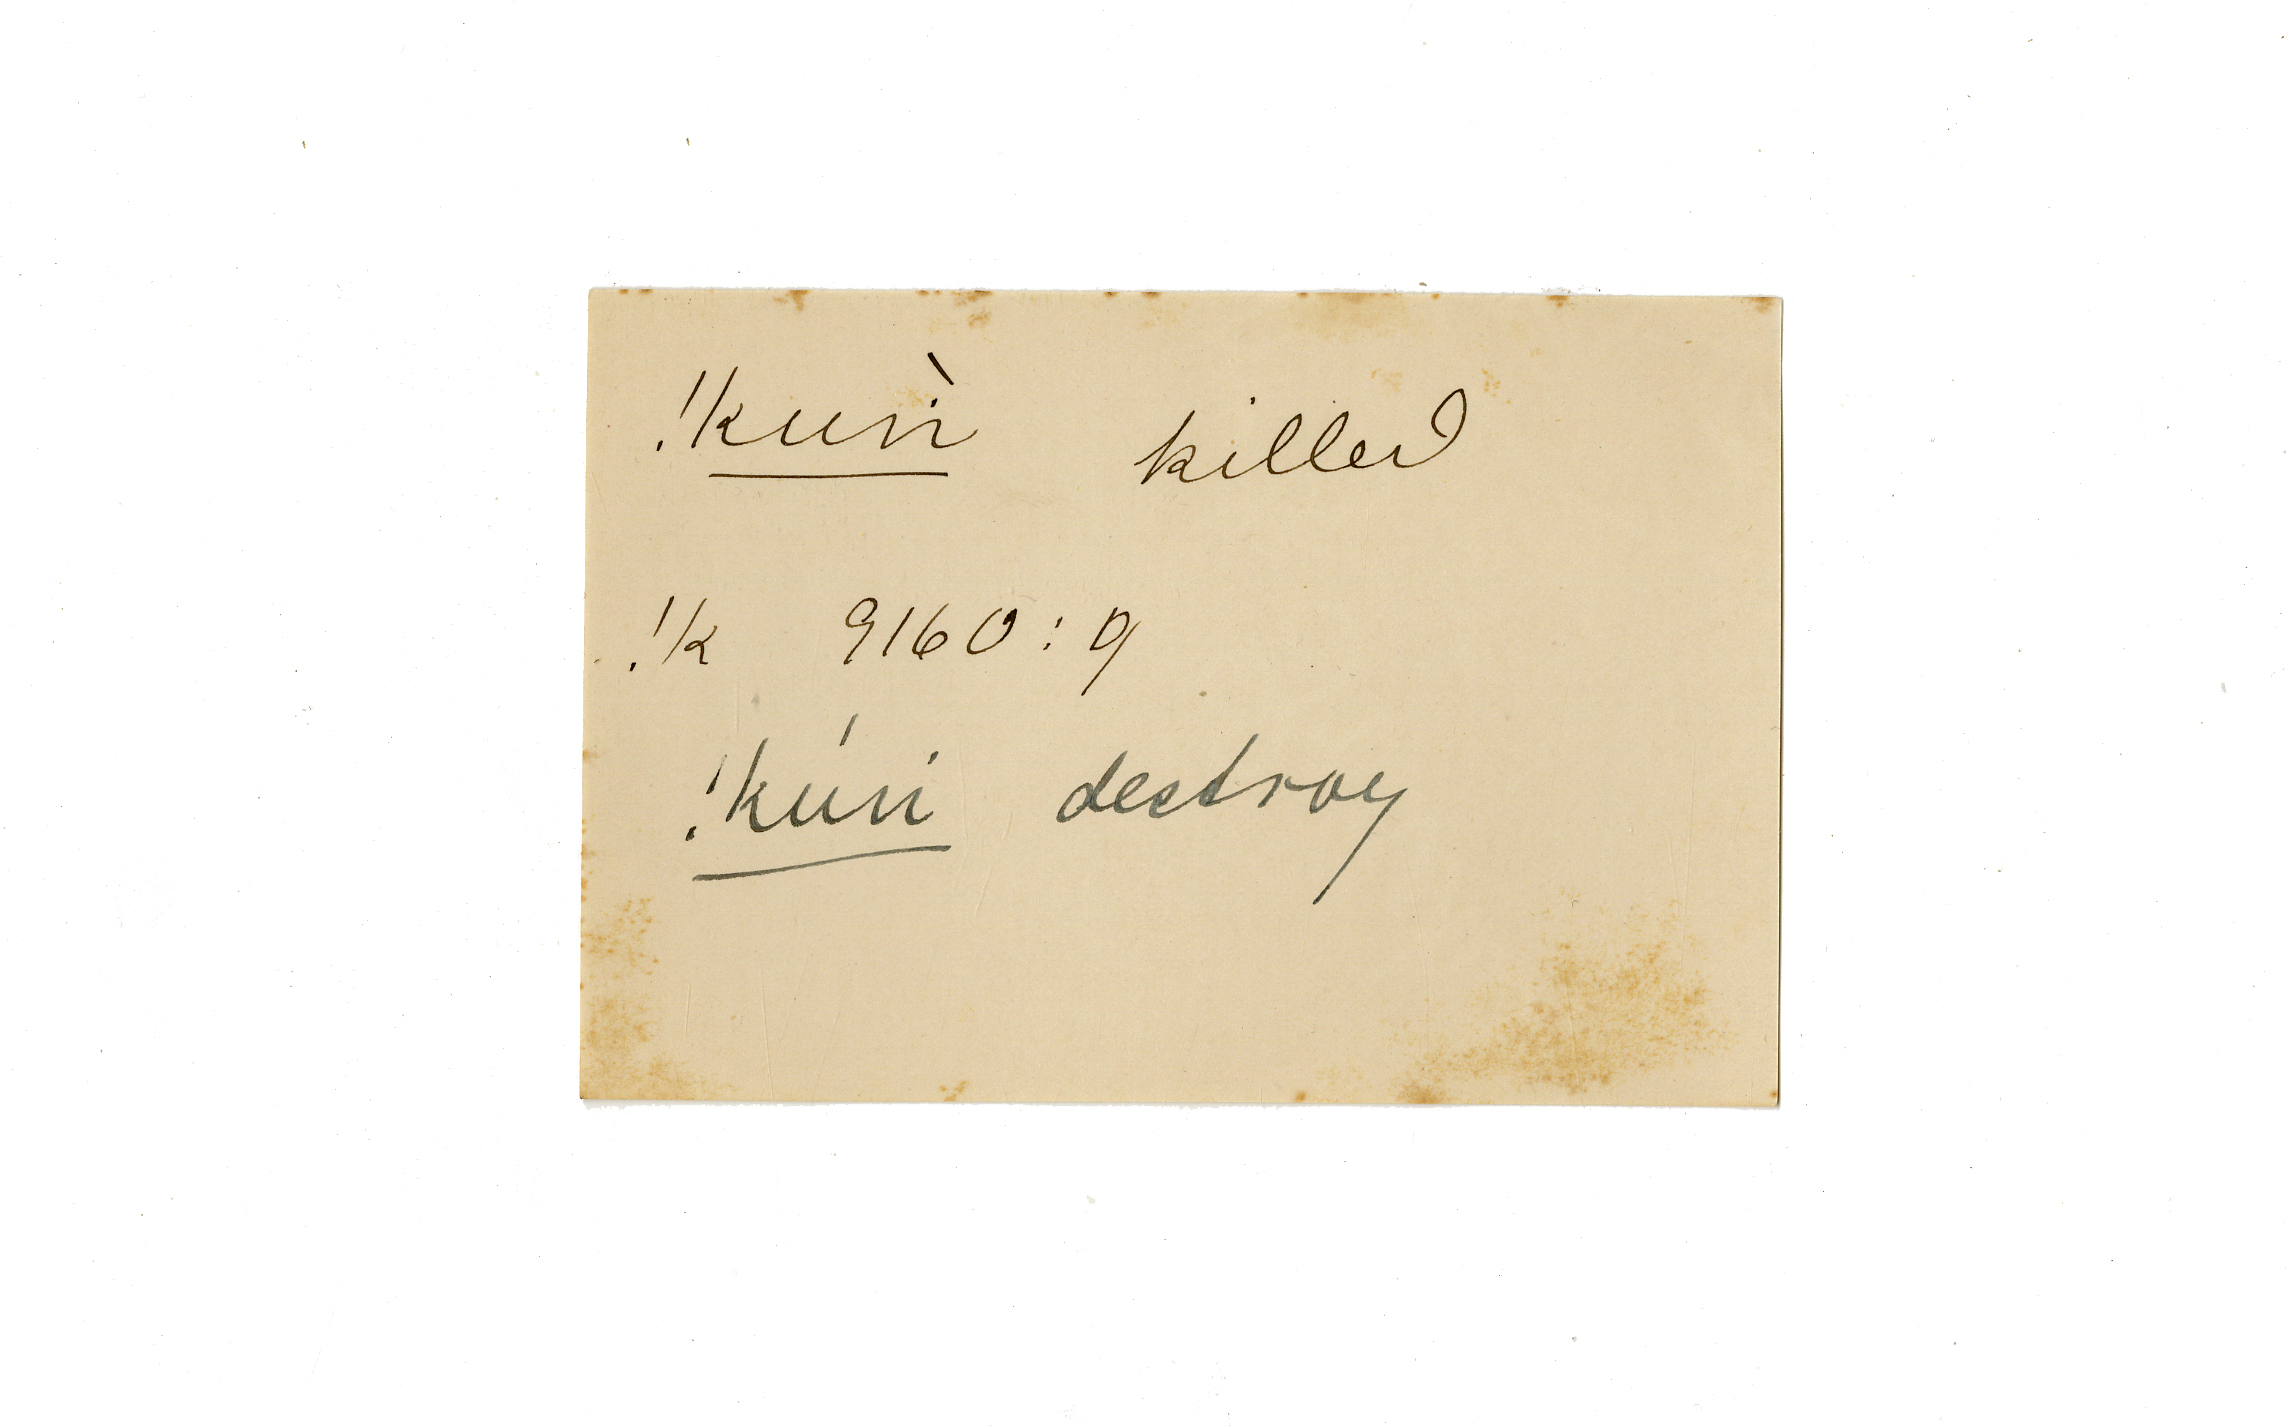 !kuǹi killed
!k 9160 : 9
!kúni destroy